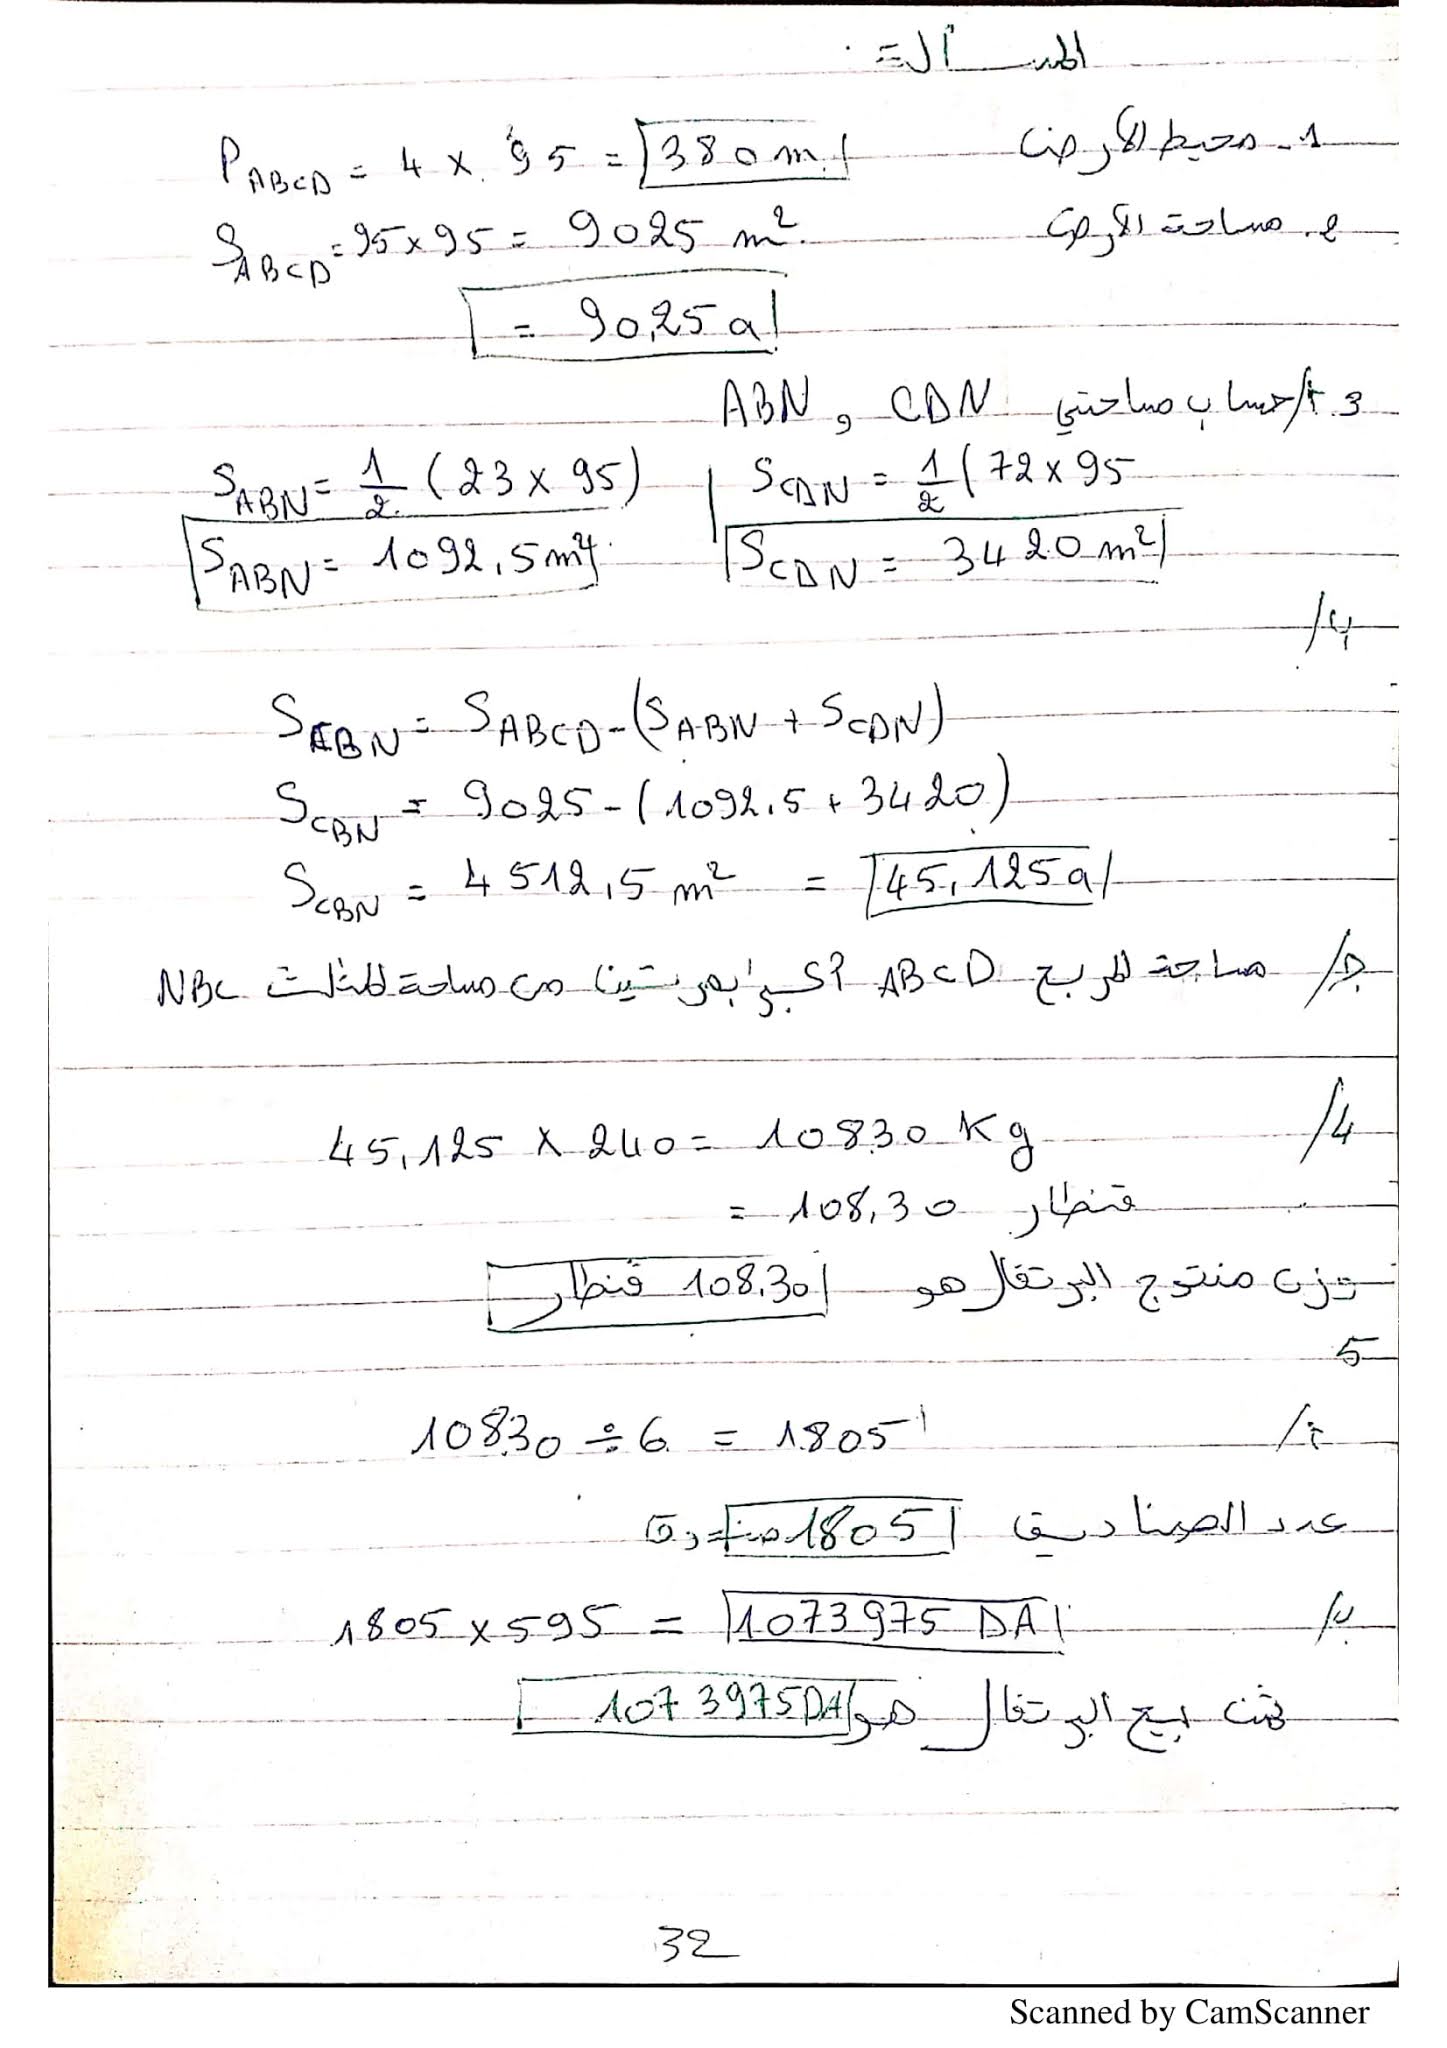 المسألة :
1- محيط الأرض P ABCD = 4 x 95 = 380 m
2. مساحة الأرض S ABCD = 95 x 95 = 9025 m²
= 90,25 a
3. أ/ حساب مساحتي CDN و ABN
S ABN = 1/2 (23 x 95) | S CDN = 1/2 (72 x 95
S ABN = 1092,5 m² S CDN = 3420 m²
ب/
S CBN = S ABCD - (S ABN + S CDN)
S CBN = 9025 - (1092,5 + 3420)
S CBN = 4512,5 m² = 45,125 a
ج/ مساحة المربع ABCD أكبر بمرتين من مساحة المثلث NBC
4/ 45,125 x 240 = 10830 Kg
= 108,30 قنطار
وزن منتوج البرتقال هو 108,30 قنطار
5
أ/ 10830 ÷ 6 = 1805
عدد الصناديق 1805 صندوق
ب/ 1805 x 595 = 1073975 DA
ثمن بيع البرتقال هو 1073975 DA
32
Scanned by CamScanner